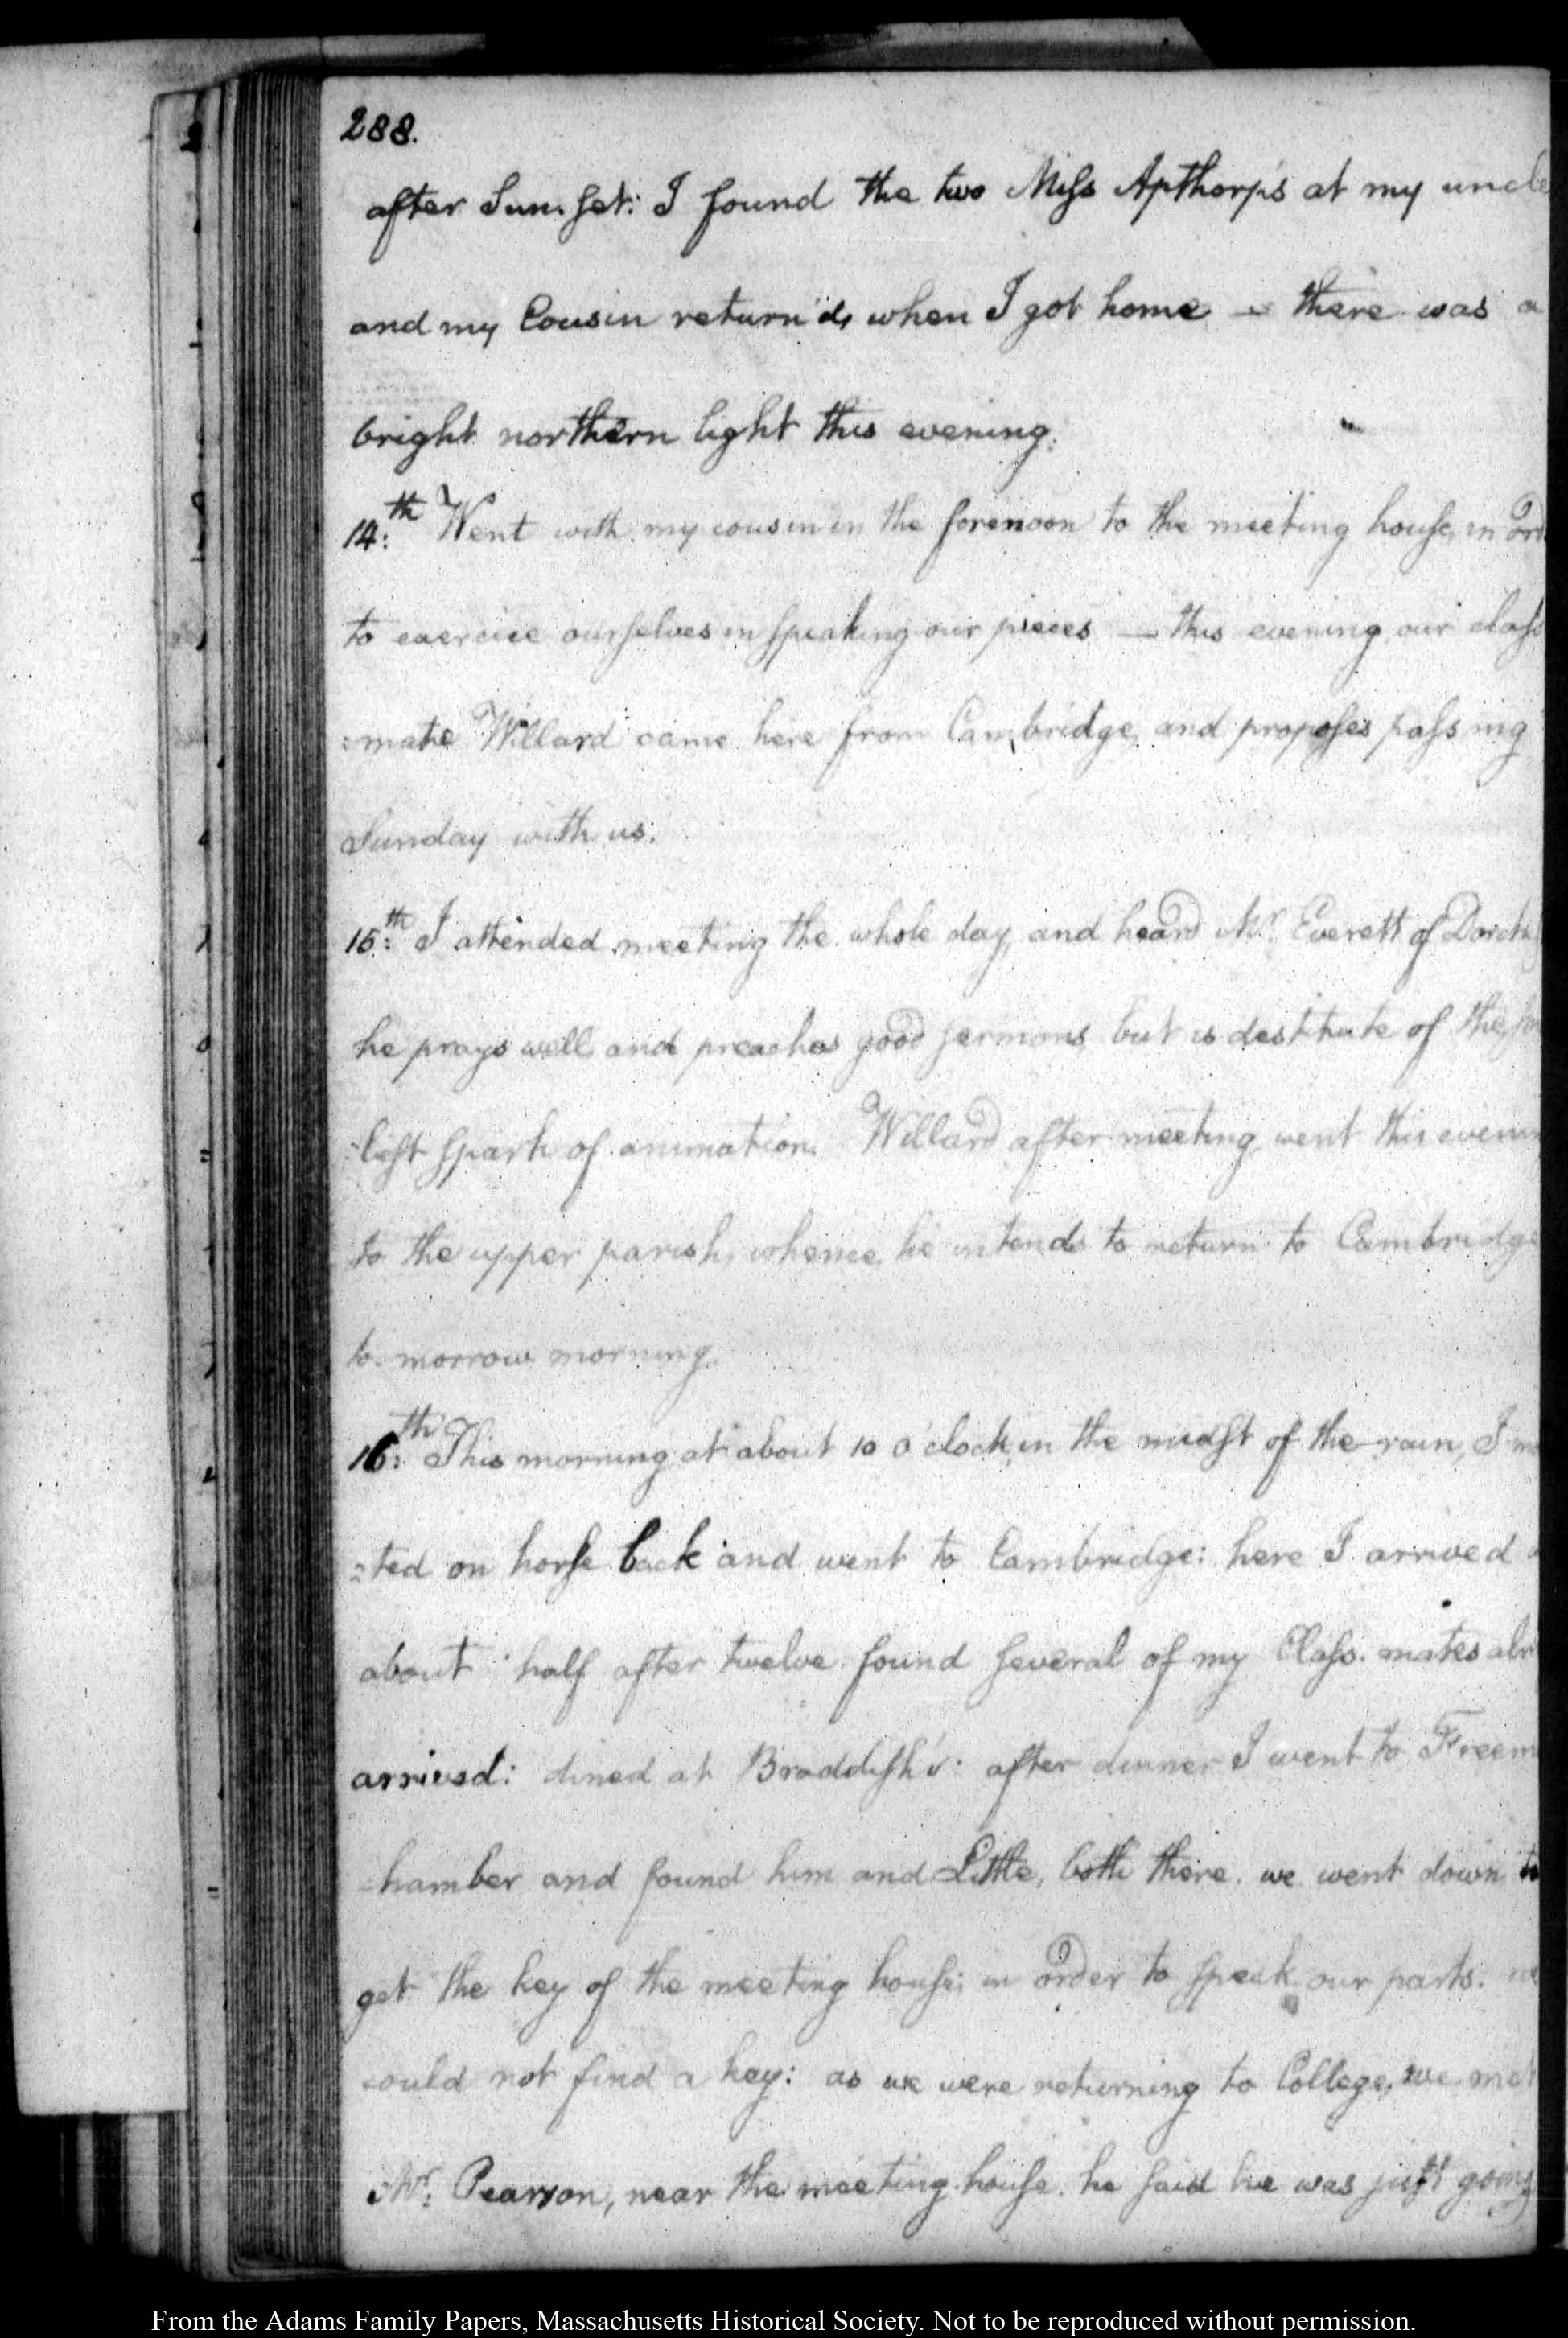 288.
after Sun. set: I found the two Miss Apthorp's at my uncle
and my Cousin return'd, when I got home — there was a
bright northern light this evening.
14:th Went with my cousin in the forenoon to the meeting house, in
to exercise ourselves in speaking our pieces — this evening our class
=mate Willard came here from Cambridge, and proposes passing
Sunday with us.
15:th I attended meeting the whole day, and heard Mr. Everett of
he prays well and preaches good sermons, but is destitute of the
=liest spark of animation. Willard after meeting, went this
to the upper parish, whence he intends to return to Cambridge
to-morrow morning.
16:th This morning at about 10 o'clock, in the midst of the rain, I
=ted on horse back and went to Cambridge: here I arrived
about half after twelve. found several of my Class. mates
arrived: dined at Braddish's: after dinner I went to
chamber and found him and Little, both there. we went down to
get the key of the meeting house; in order to speak our parts. we
could not find a key: as we were returning to College, we met
Mr: Pearson, near the meeting-house. he said he was just going
From the Adams Family Papers, Massachusetts Historical Society. Not to be reproduced without permission.